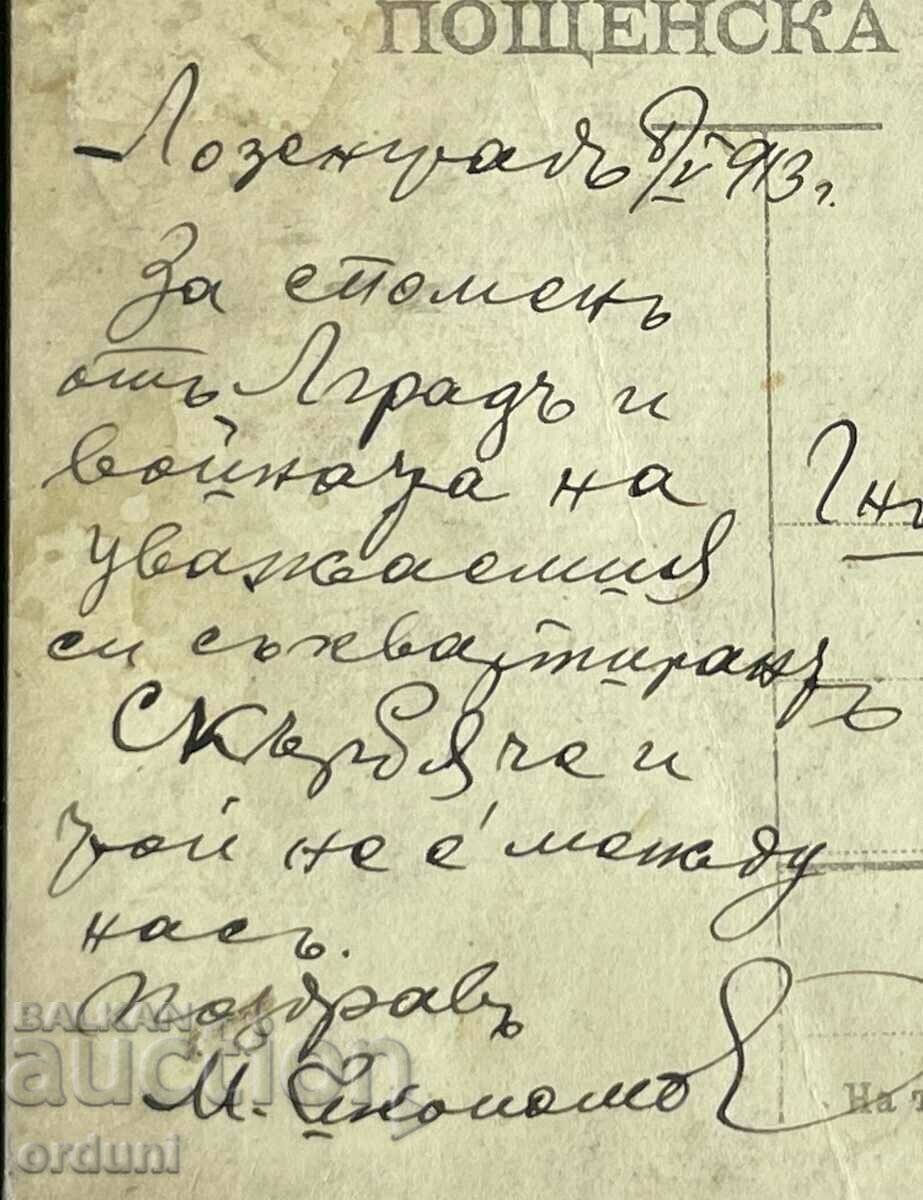 ПОЩЕНСКА
Лозенградъ 8/V 913 г.
За споменъ
отъ Лградъ и
войната на
уважаемия
си съквартирантъ
Скърбяче и
той не е между
насъ.
Поздравъ
М. Икономовъ
Гнъ
На
BALKAN
auction
orduni